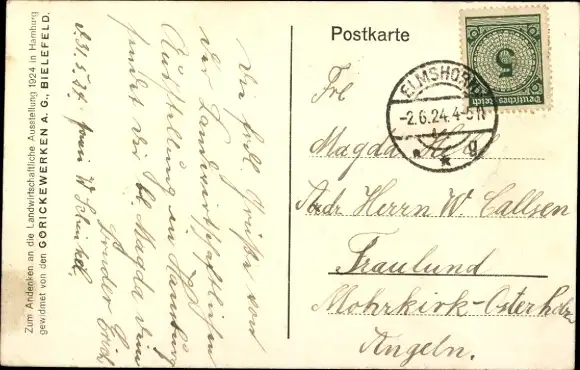 Zum Andenken an die Landwirtschaftliche Ausstellung 1924 in Hamburg
gewidmet von den GÖRICKEWERKEN A. G., BIELEFELD.
d. 31.5.24.
Die herzl. Grüße von
der Landwirtschaftlichen
Ausstellung in Hamburg
sendet Dir lb. Magda Dein
Bruder Erich
Postkarte
5
Deutsches Reich
ELMSHORN
-2.6.24. 4-5 N
* * g
Frl.
Magda
Adr. Herrn W. Callsen
Fraulund
Mohrkirk-Osterholz
Angeln.